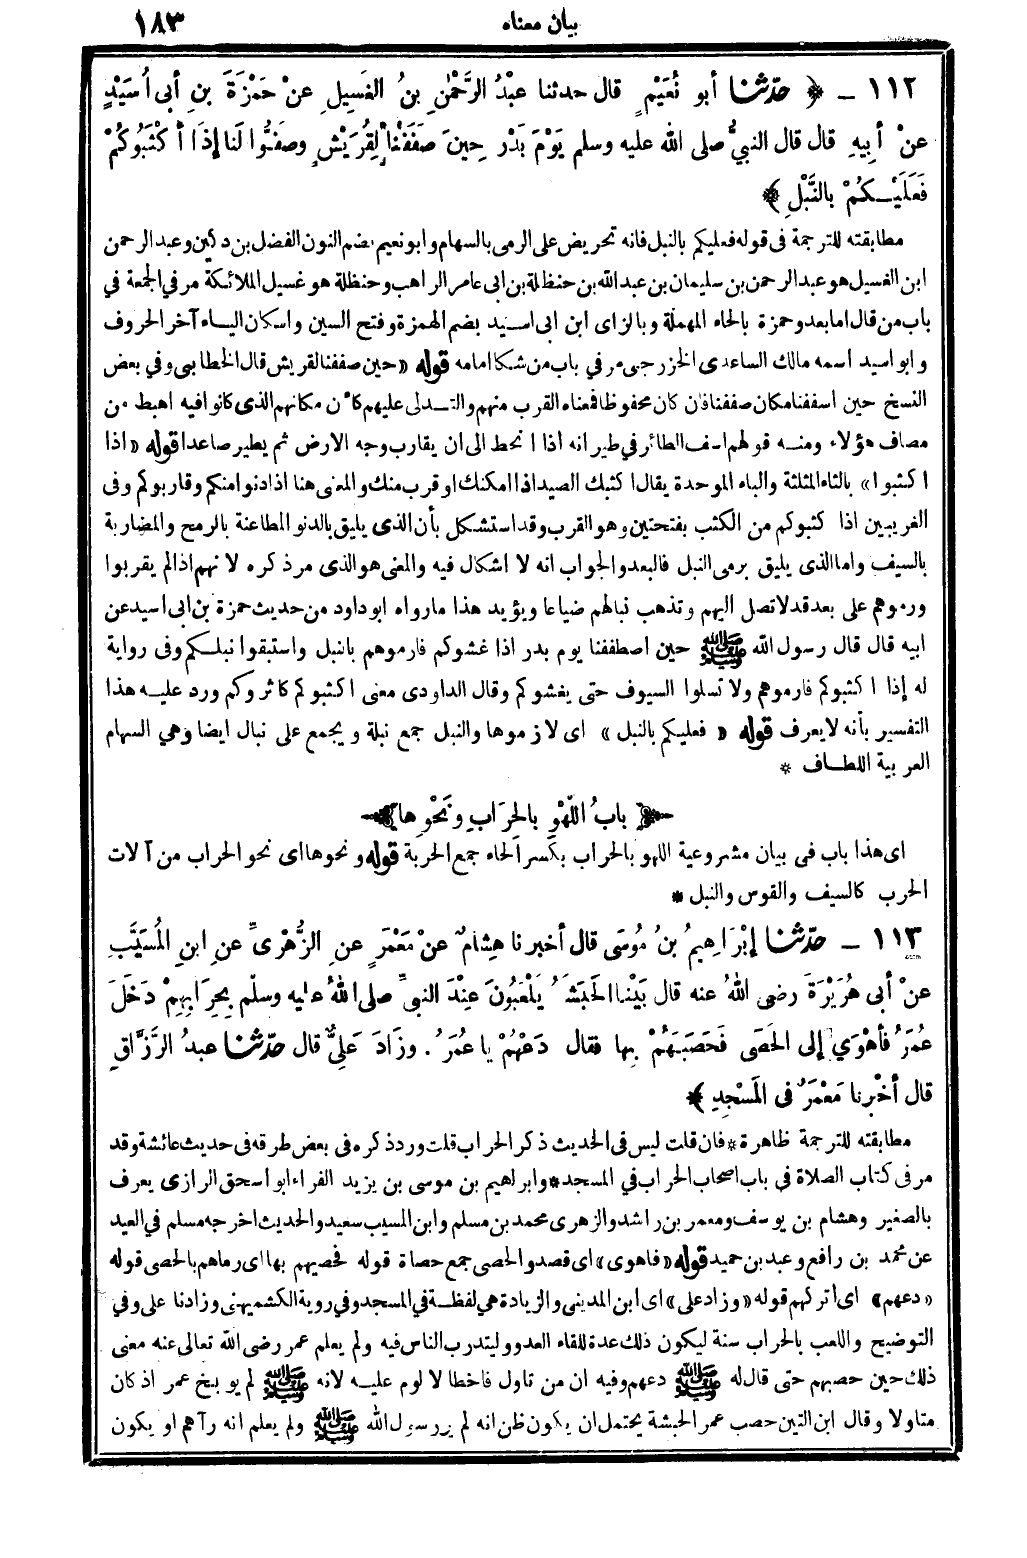 بيان معناه
١٨٣
١١٢ ـ ﴿ حدّثنا أبو نُعَيْمٍ قال حدثنا عبْدُ الرَّحْمٰنِ بنُ الغَسِيلِ عنْ حَمْزَةَ بنِ أبى أُسَيْدٍ
عنْ أبِيهِ قال قال النبيُّ صلى الله عليه وسلم يَوْمَ بَدْرٍ حِينَ صَفَفْنا لِقُرَيْشٍ وصَفُّوا لَنا إذَا أكْثَبُوكُمْ
فَعَلَيْكُمْ بالنَّبْلِ ﴾
مطابقته للترجمة فى قوله فعليكم بالنبل فانه تحريض على الرمى بالسهام وابو نعيم بضم النون الفضل بن دكين وعبد الرحمن
ابن الغسيل هو عبد الرحمن بن سليمان بن عبد الله بن حنظلة بن ابى عامر الراهب وحنظلة هو غسيل الملائكة مر في الجمعة في
باب من قال اما بعد وحمزة بالحاء المهملة وبالزاى ابن ابى اسيد بضم الهمزة وفتح السين واسكان الياء آخر الحروف
وابو اسيد اسمه مالك الساعدى الخزرجى مر في باب من شكا امامه قوله «حين صففنا لقريش قال الخطابى وفي بعض
النسخ حين اسففنا مكان صففنا فان كان محفوظا فمعناه القرب منهم والتدلى عليهم كأن مكانهم الذى كانوا فيه اهبط من
مصاف هؤلاء ومنه قولهم اسف الطائر في طيرانه اذا انحط الى ان يقارب وجه الارض ثم يطير صاعدا قوله «اذا
اكثبوا» بالثاء المثلثة والباء الموحدة يقال اكثبك الصيد اذا امكنك او قرب منك والمعنى هنا اذا دنوا منكم وقاربوكم وفى
الغريبين اذا كثبوكم من الكثب بفتحتين وهو القرب وقد استشكل بأن الذى يليق بالدنو المطاعنة بالرمح والمضاربة
بالسيف واما الذى يليق برمى النبل فالبعد والجواب انه لا اشكال فيه والمعنى هو الذى مر ذكره لانهم اذا لم يقربوا
ورموهم على بعد قد لا تصل اليهم وتذهب نبالهم ضياعا ويؤيد هذا ما رواه ابو داود من حديث حمزة بن ابى اسيد عن
ابيه قال قال رسول الله ﷺ حين اصطففنا يوم بدر اذا غشوكم فارموهم بالنبل واستبقوا نبلكم وفى رواية
له إذا اكثبوكم فارموهم ولا تسلوا السيوف حتى يغشوكم وقال الداودى معنى اكثبوكم كاثروكم ورد عليه هذا
التفسير بأنه لا يعرف قوله «فعليكم بالنبل» اى لازموها والنبل جمع نبلة ويجمع على نبال ايضا وهي السهام
العربية اللطاف *
﴿ بابُ اللَّهْوِ بالحِرَابِ ونَحْوِها ﴾
اى هذا باب فى بيان مشروعية اللهو بالحراب بكسر الحاء جمع الحربة قوله ونحوها اى نحو الحراب من آلات
الحرب كالسيف والقوس والنبل *
١١٣ ـ حدّثنا إبْرَاهِيمُ بنُ مُوسَى قال أخبرنا هِشامٌ عنْ مَعْمَرٍ عنِ الزُّهْرِىِّ عنِ ابنِ المُسَيَّبِ
عنْ أبى هُرَيْرَةَ رضى اللهُ عنه قال بَيْنا الحَبَشَةُ يَلْعَبُونَ عِنْدَ النبىِّ صلى اللهُ عليه وسلّم بِحِرَابِهِمْ دَخَلَ
عُمَرُ فأهْوَى إلى الحَصَى فَحَصَبَهُمْ بِها فقال دَعْهُمْ يا عُمَرُ. وزَادَ عَلِىٌّ قال حدّثنا عبدُ الرَّزَّاقِ
قال أخْبرنا مَعْمَرٌ فى المَسْجِدِ ﴾
مطابقته للترجمة ظاهرة * فان قلت ليس فى الحديث ذكر الحراب قلت ورد ذكره فى بعض طرقه فى حديث عائشة وقد
مر فى كتاب الصلاة فى باب اصحاب الحراب في المسجد * وابراهيم بن موسى بن يزيد الفراء ابو اسحق الرازى يعرف
بالصغير وهشام بن يوسف ومعمر بن راشد والزهرى محمد بن مسلم وابن المسيب سعيد والحديث اخرجه مسلم في العيد
عن محمد بن رافع وعبد بن حميد قوله «فاهوى» اى قصد والحصى جمع حصاة قوله فحصبهم بها اى رماهم بالحصى قوله
«دعهم» اى اتركهم قوله «وزاد على» اى ابن المدينى والزيادة هي لفظة في المسجد وفي روية الكشميهنى وزادنا على وفي
التوضيح واللعب بالحراب سنة ليكون ذلك عدة للقاء العدو وليتدرب الناس فيه ولم يعلم عمر رضى الله تعالى عنه معنى
ذلك حين حصبهم حتى قال له ﷺ دعهم وفيه ان من تاول فاخطا لا لوم عليه لانه ﷺ لم يوبخ عمر اذ كان
متاولا وقال ابن التين حصب عمر الحبشة يحتمل ان يكون ظن انه لم ير رسول الله ﷺ ولم يعلم انه رآهم او يكون